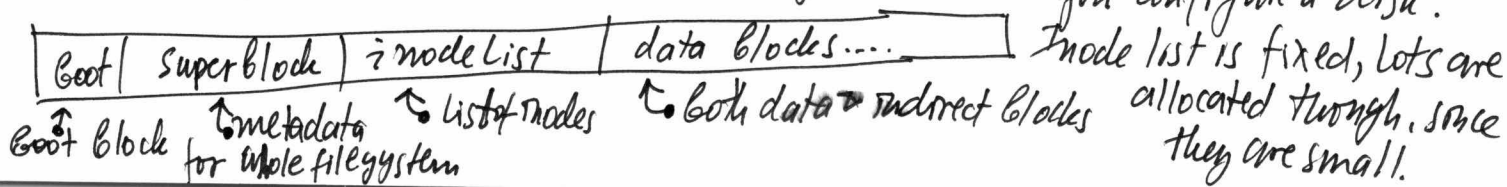 you configure a disk.
Boot | Superblock | inode List | data blocks....
Inode list is fixed, lots are
allocated though, since
they are small.
Boot block
metadata
for whole filesystem
List of inodes
both data & indirect blocks